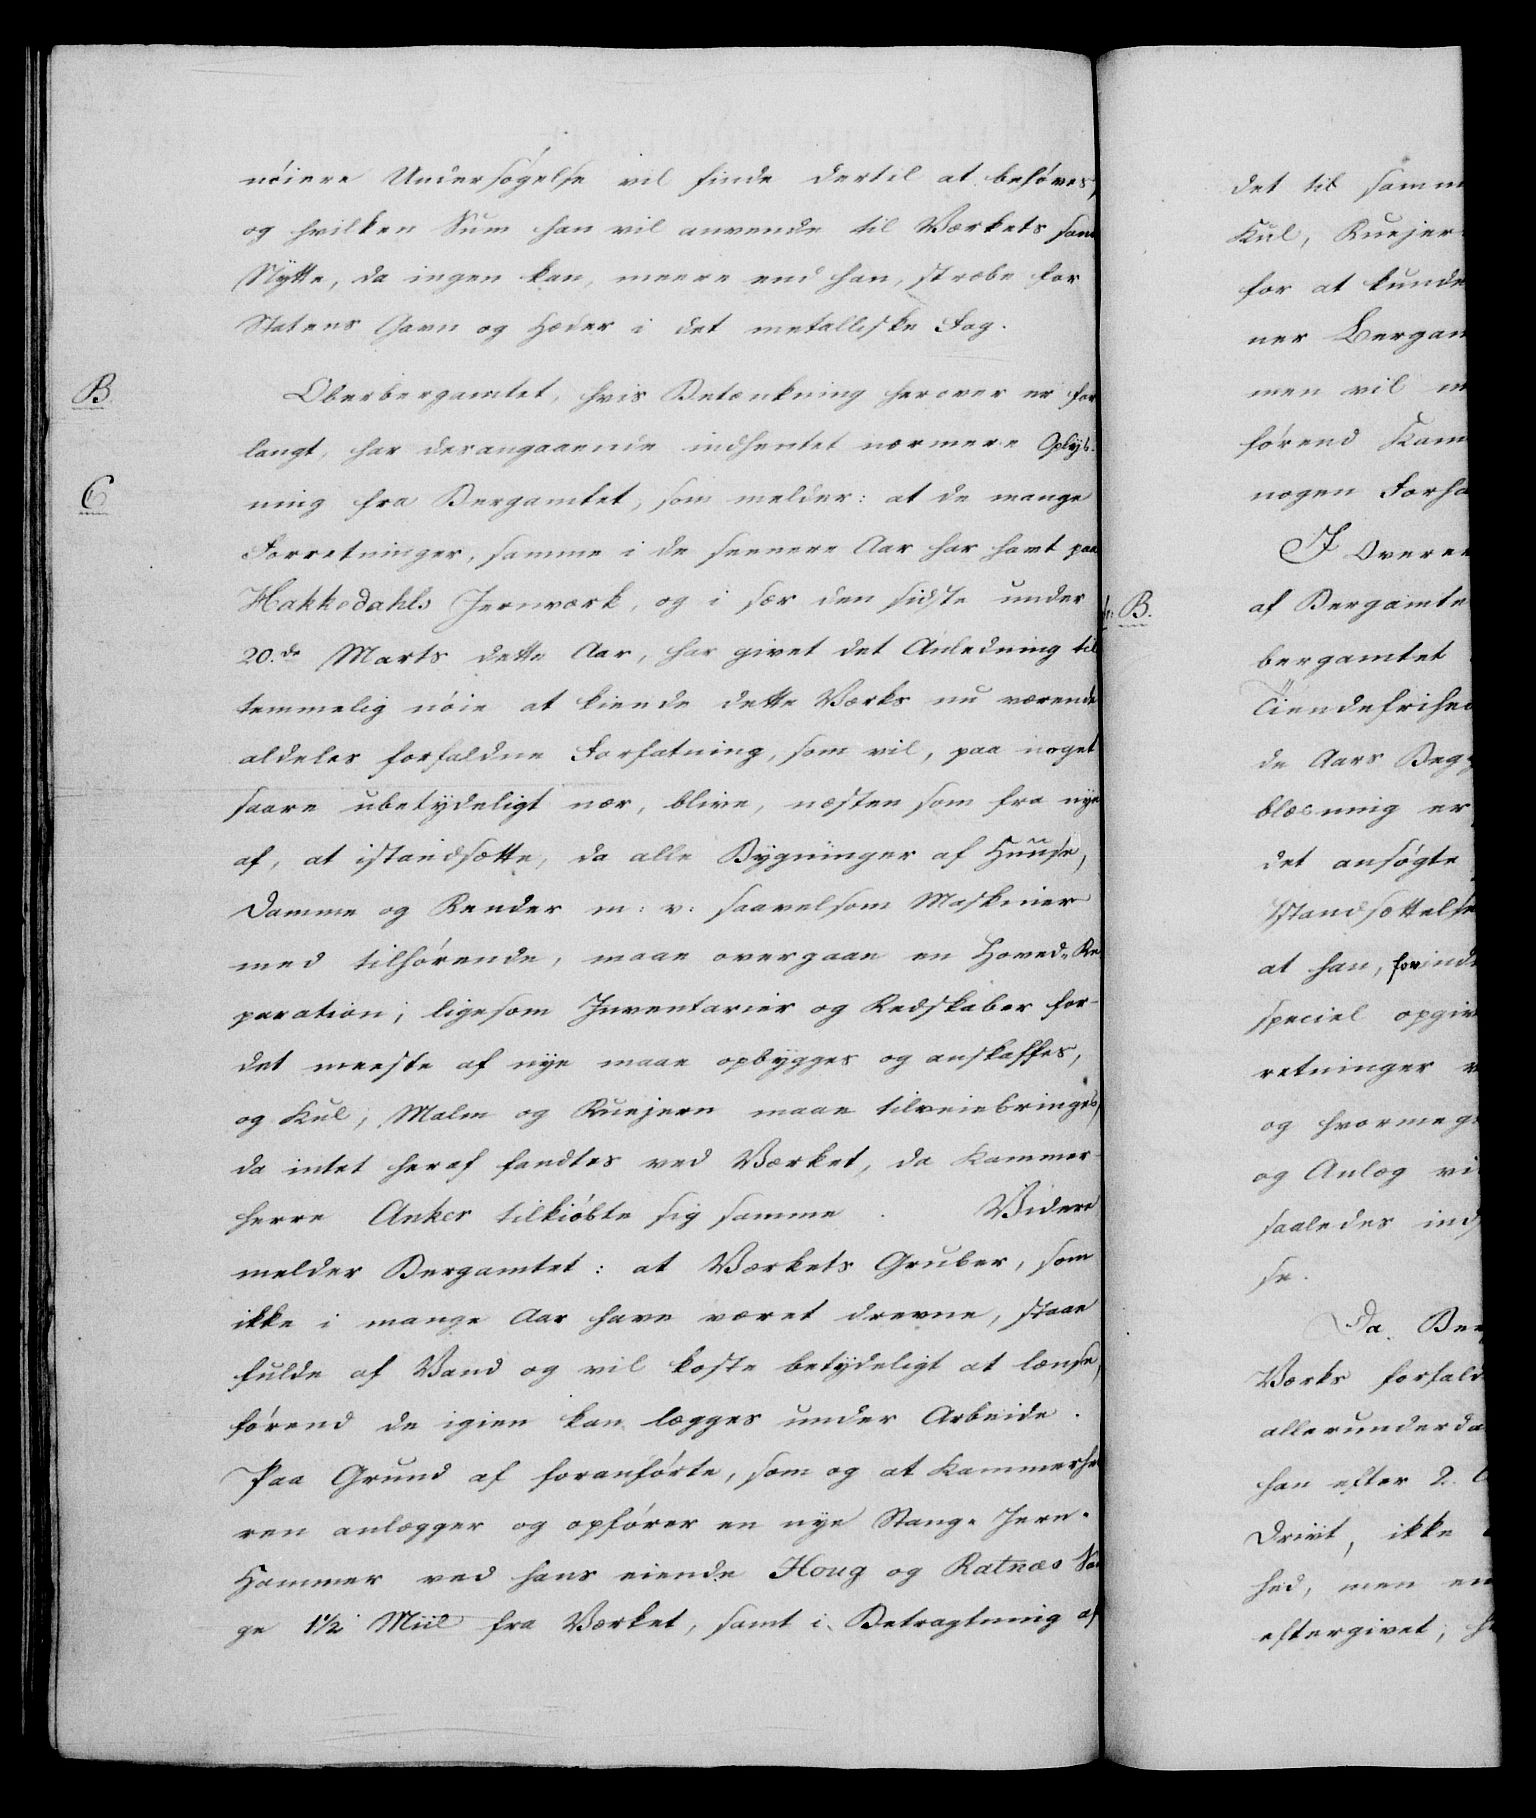 nöiere Undersøgelse vil finde dertil at behøves,
og hvilken Sum han vil anvende til Værkets sande
Nytte, da ingen kan, meere end han, stræbe for
Statens Gavn og Hæder i det metalliske Fag.
B.
Oberbergamtet, hvis Betænkning herover er for
langt, har desangaaende indhentet nærmere Oplys-
C
ning fra Bergamtet, som melder: at de mange
Forretninger, samme i de seenere Aar har havt paa
Hakkedahls Jernværk, og i sær den sidste under
20.de Marts dette Aar, har givet det Anledning til
temmelig nöie at kiende dette Værks nu værende
aldeles forfaldne Forfatning, som vil, paa noget
saare ubetydeligt nær, blive, næsten som fra nye
af, at istandsætte, da alle Bygninger af Huuse,
Damme og Render m: v: saavelsom Maskiner
med tilhørende, maae overgaae en Hoved-Re
paration; ligesom Inventarier og Redskaber for-
det meeste af nye maae opbygges og anskaffes,
og Kul, Malm og Ruejern maae tilveiebringes,
da intet heraf fandtes ved Værket, da Kammer-
herre Anker tilkiøbte sig samme. Videre
melder Bergamtet: at Værkets Gruber, som
ikke i mange Aar have været drevne, staae
fulde af Vand og vil koste betydeligt at lænse,
førend de igien kan lægges under Arbeide.
Paa Grund af foranførte, som og at Kammerher
ren anlægger og opfører en nye Stang-Jern-
Hammer ved hans eiende Houg og Ratnæs Sau
ge 1½ Miil fra Værket, samt i Betragtning af
det til samm
Kul, Ruejer
for at kunde
ner Bergam
men vil m
førend Kam
nogen Forha
I Overee
B.
af Bergamte
bergamtet
Tiendefrihed
de Aars Beg
blæsning er
det ansøgte
Istandsættelse
at han, forinde
speciel opgiv
retninger v
og hvormege
og Anlæg vi
saaledes ind
se.
Da Ber
Værks forfald
allerunderda
han efter 2.
Drivt, ikke
hed, men en
eftergivet, h